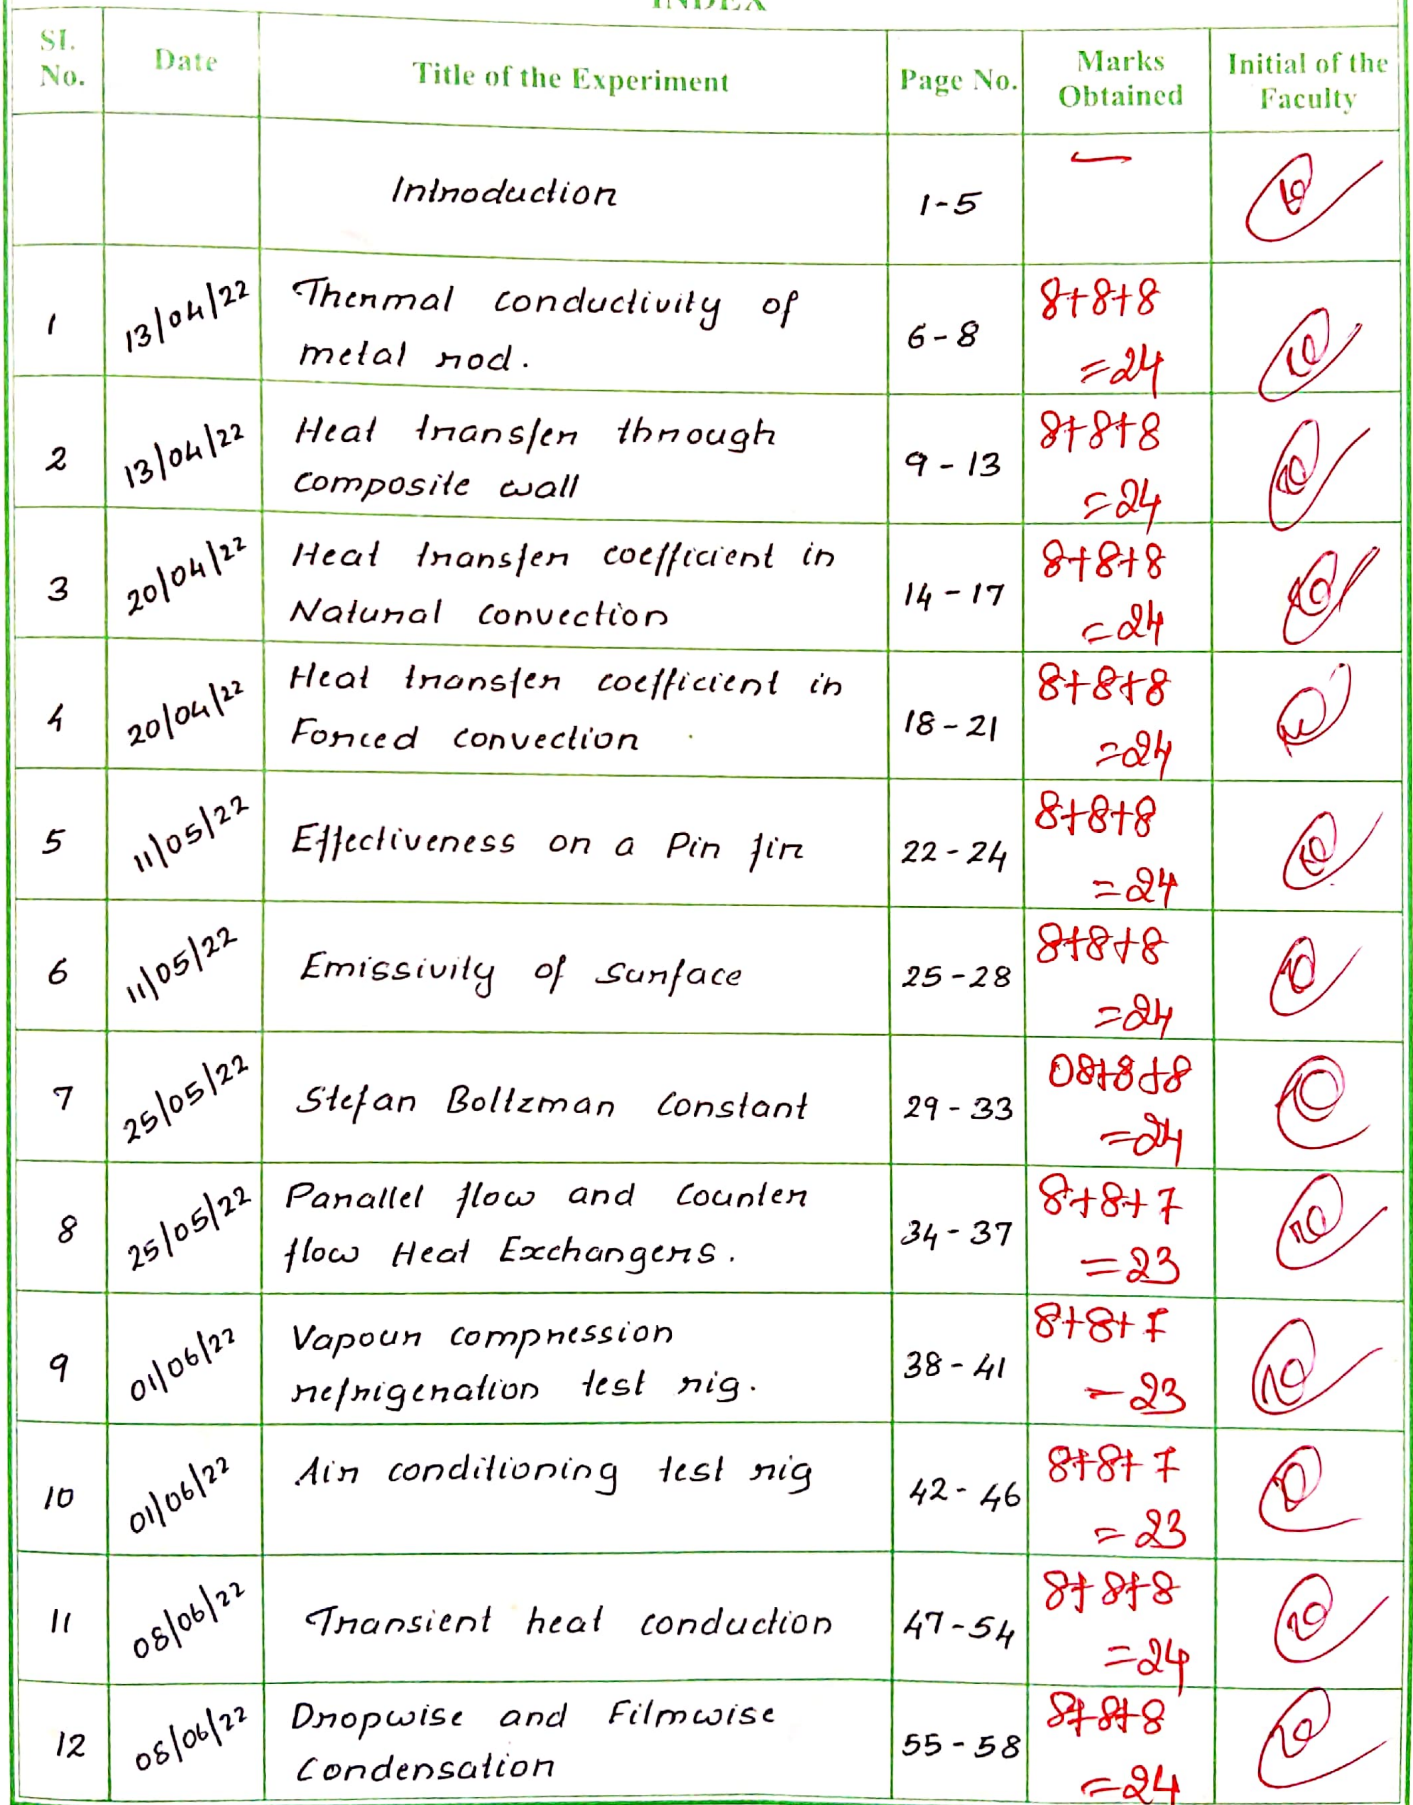 INDEX
Sl. No. Date Title of the Experiment Page No. Marks Obtained Initial of the Faculty
Introduction 1-5 —
1 13/04/22 Thermal conductivity of 6-8 8+8+8
metal rod. =24
2 13/04/22 Heat transfer through 9-13 8+8+8
composite wall =24
3 20/04/22 Heat transfer coefficient in 14-17 8+8+8
Natural convection =24
4 20/04/22 Heat transfer coefficient in 18-21 8+8+8
Forced convection =24
5 11/05/22 Effectiveness on a Pin fin 22-24 8+8+8
=24
6 11/05/22 Emissivity of surface 25-28 8+8+8
=24
7 25/05/22 Stefan Boltzman Constant 29-33 08+8+8
=24
8 25/05/22 Parallel flow and Counter 34-37 8+8+7
flow Heat Exchangers. =23
9 01/06/22 Vapour compression 38-41 8+8+7
refrigeration test rig. -23
10 01/06/22 Air conditioning test rig 42-46 8+8+7
=23
11 08/06/22 Transient heat conduction 47-54 8+8+8
=24
12 08/06/22 Dropwise and Filmwise 55-58 8+8+8
Condensation =24